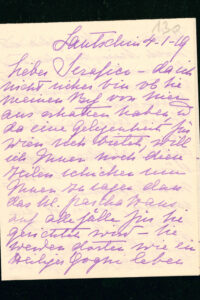 130
Lautschin 4.1.19
Lieber Serafico – da ich
nicht sicher bin ob Sie
meinen Brief von hier
aus erhalten haben, u
da eine Gelegenheit für
Wien sich bietet, will
ich Ihnen noch diese
Zeilen schicken um
Ihnen zu sagen dass
das kl.
auf alle fälle für Sie
gerichtet wird – Sie
werden dorten wie ein
leben